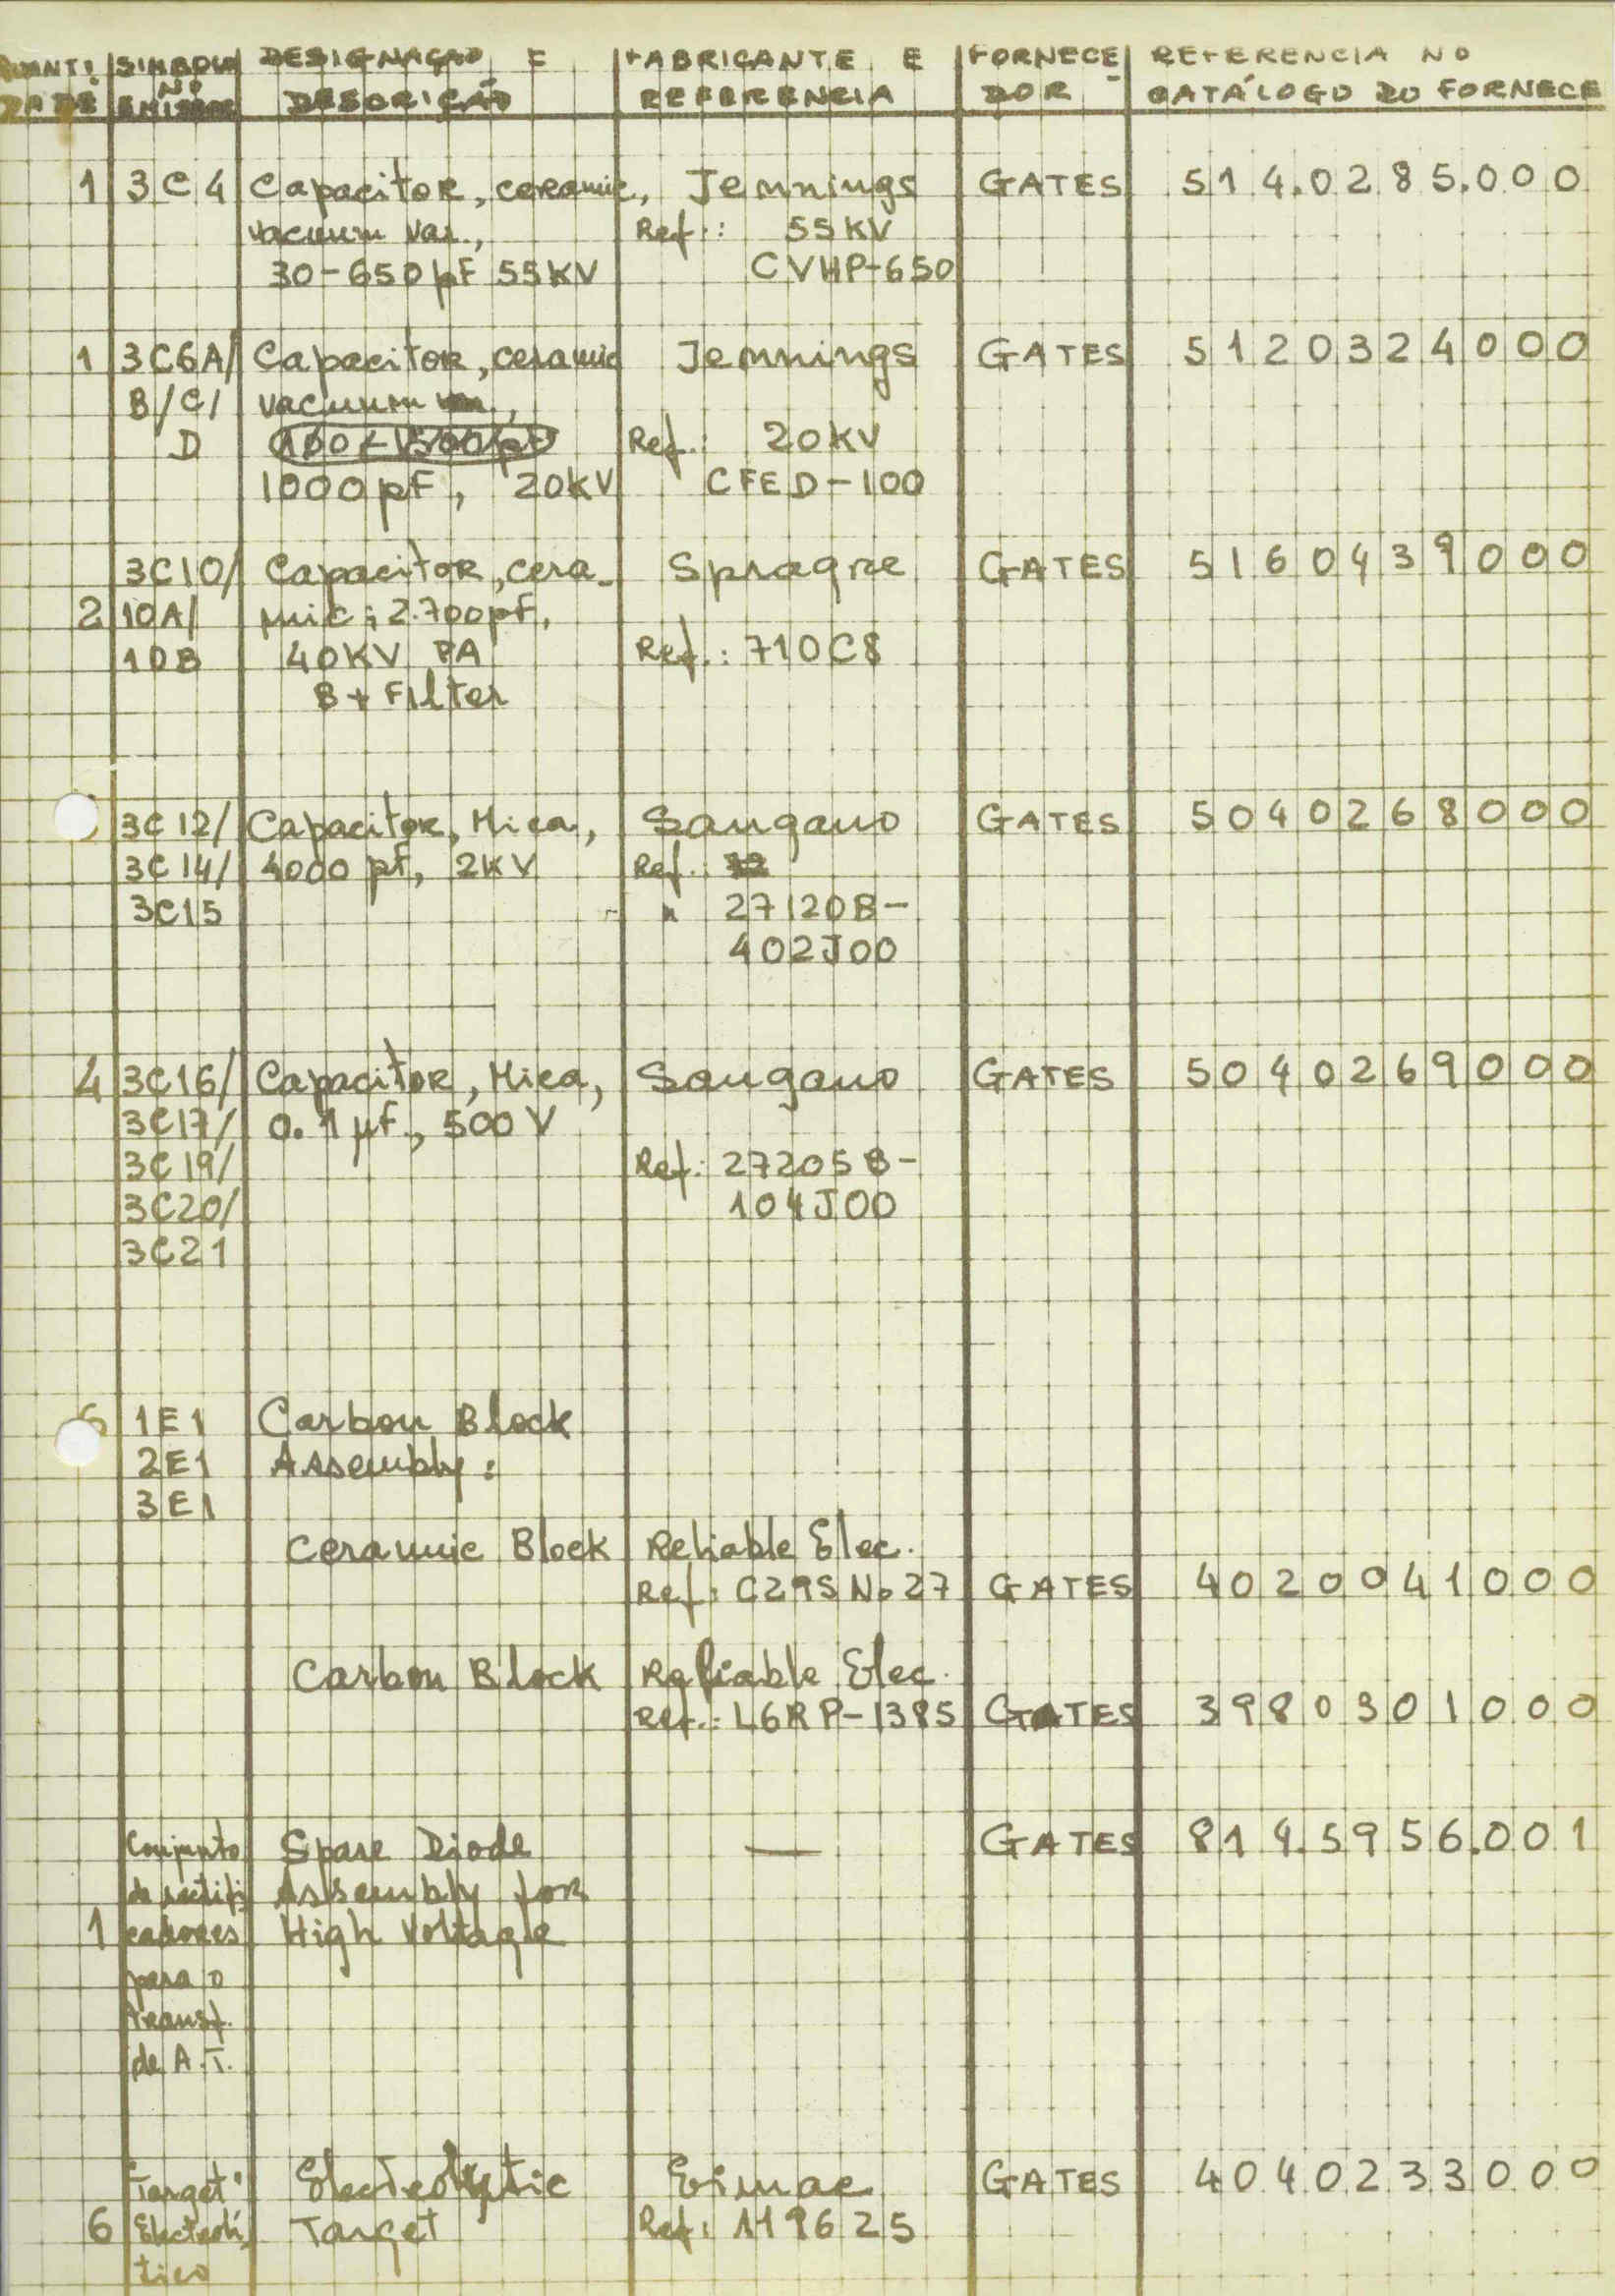 QUANTI SIMBOLO DESIGNAÇÃO E FABRICANTE E FORNECE REFERENCIA NO
DADE NO EMISSOR DESCRIÇÃO REFERENCIA DOR CATÁLOGO DO FORNECE
1 3C4 Capacitor, ceramic, Jennings GATES 514.0285.000
vacuum var., Ref.: 55KV
30-650pF 55KV CVHP-650
1 3C6A/ Capacitor, ceramic Jennings GATES 5120324000
B/C/ vacuum
D Ref.: 20KV
1000pF, 20KV CFED-100
3C10/ Capacitor, cera- Sprague GATES 5160439000
2 10A/ mic; 2.700pF,
10B 40KV PA Ref.: 710C8
B+ Filter
3C12/ Capacitor, Mica, Sangano GATES 5040268000
3C14/ 4000 pF, 2KV Ref.:
3C15 " 27120B-
402J00
4 3C16/ Capacitor, Mica, Sangano GATES 5040269000
3C17/ 0.1 µF, 500V
3C19/ Ref: 27205B-
3C20/ 104J00
3C21
6 1E1 Carbon Block
2E1 Assembly:
3E1
Ceramic Block Reliable Elec.
Ref: C29S No 27 GATES 4020041000
Carbon Block Reliable Elec.
Ref.: L6RP-1385 GATES 3980301000
Conjunto Spare Diode — GATES 814.5956.001
de rectifi Assembly for
1 cadores High Voltage
para o
transf.
de A.T.
Target Electrolytic Eimac GATES 4040233000
6 Electrolí Target Ref: 119625
tico